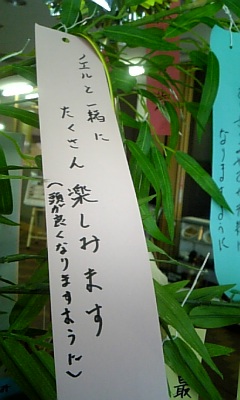 ノエルと一緒に
たくさん 楽しみます
(頭が良くなりますように)
なりますように
最